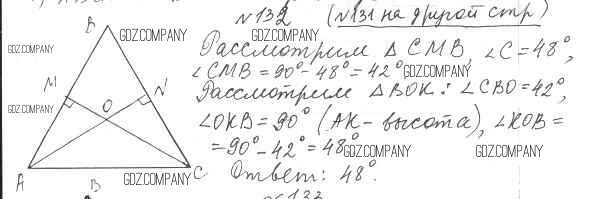 №132 (№131 на другой стр)
В
GDZ.COMPANY GDZ.COMPANY
Рассмотрим △ CMB, ∠C=48°,
GDZ.COMPANY
∠CMB = 90° - 48° = 42° GDZ.COMPANY
M N
Рассмотрим △BOK: ∠CBO=42°,
GDZ.COMPANY
O
∠OKB = 90° (AK - высота), ∠KOB =
= 90° - 42° = 48° GDZ.COMPANY GDZ.COMPANY
A В GDZ.COMPANY C
Ответ: 48°.
№133